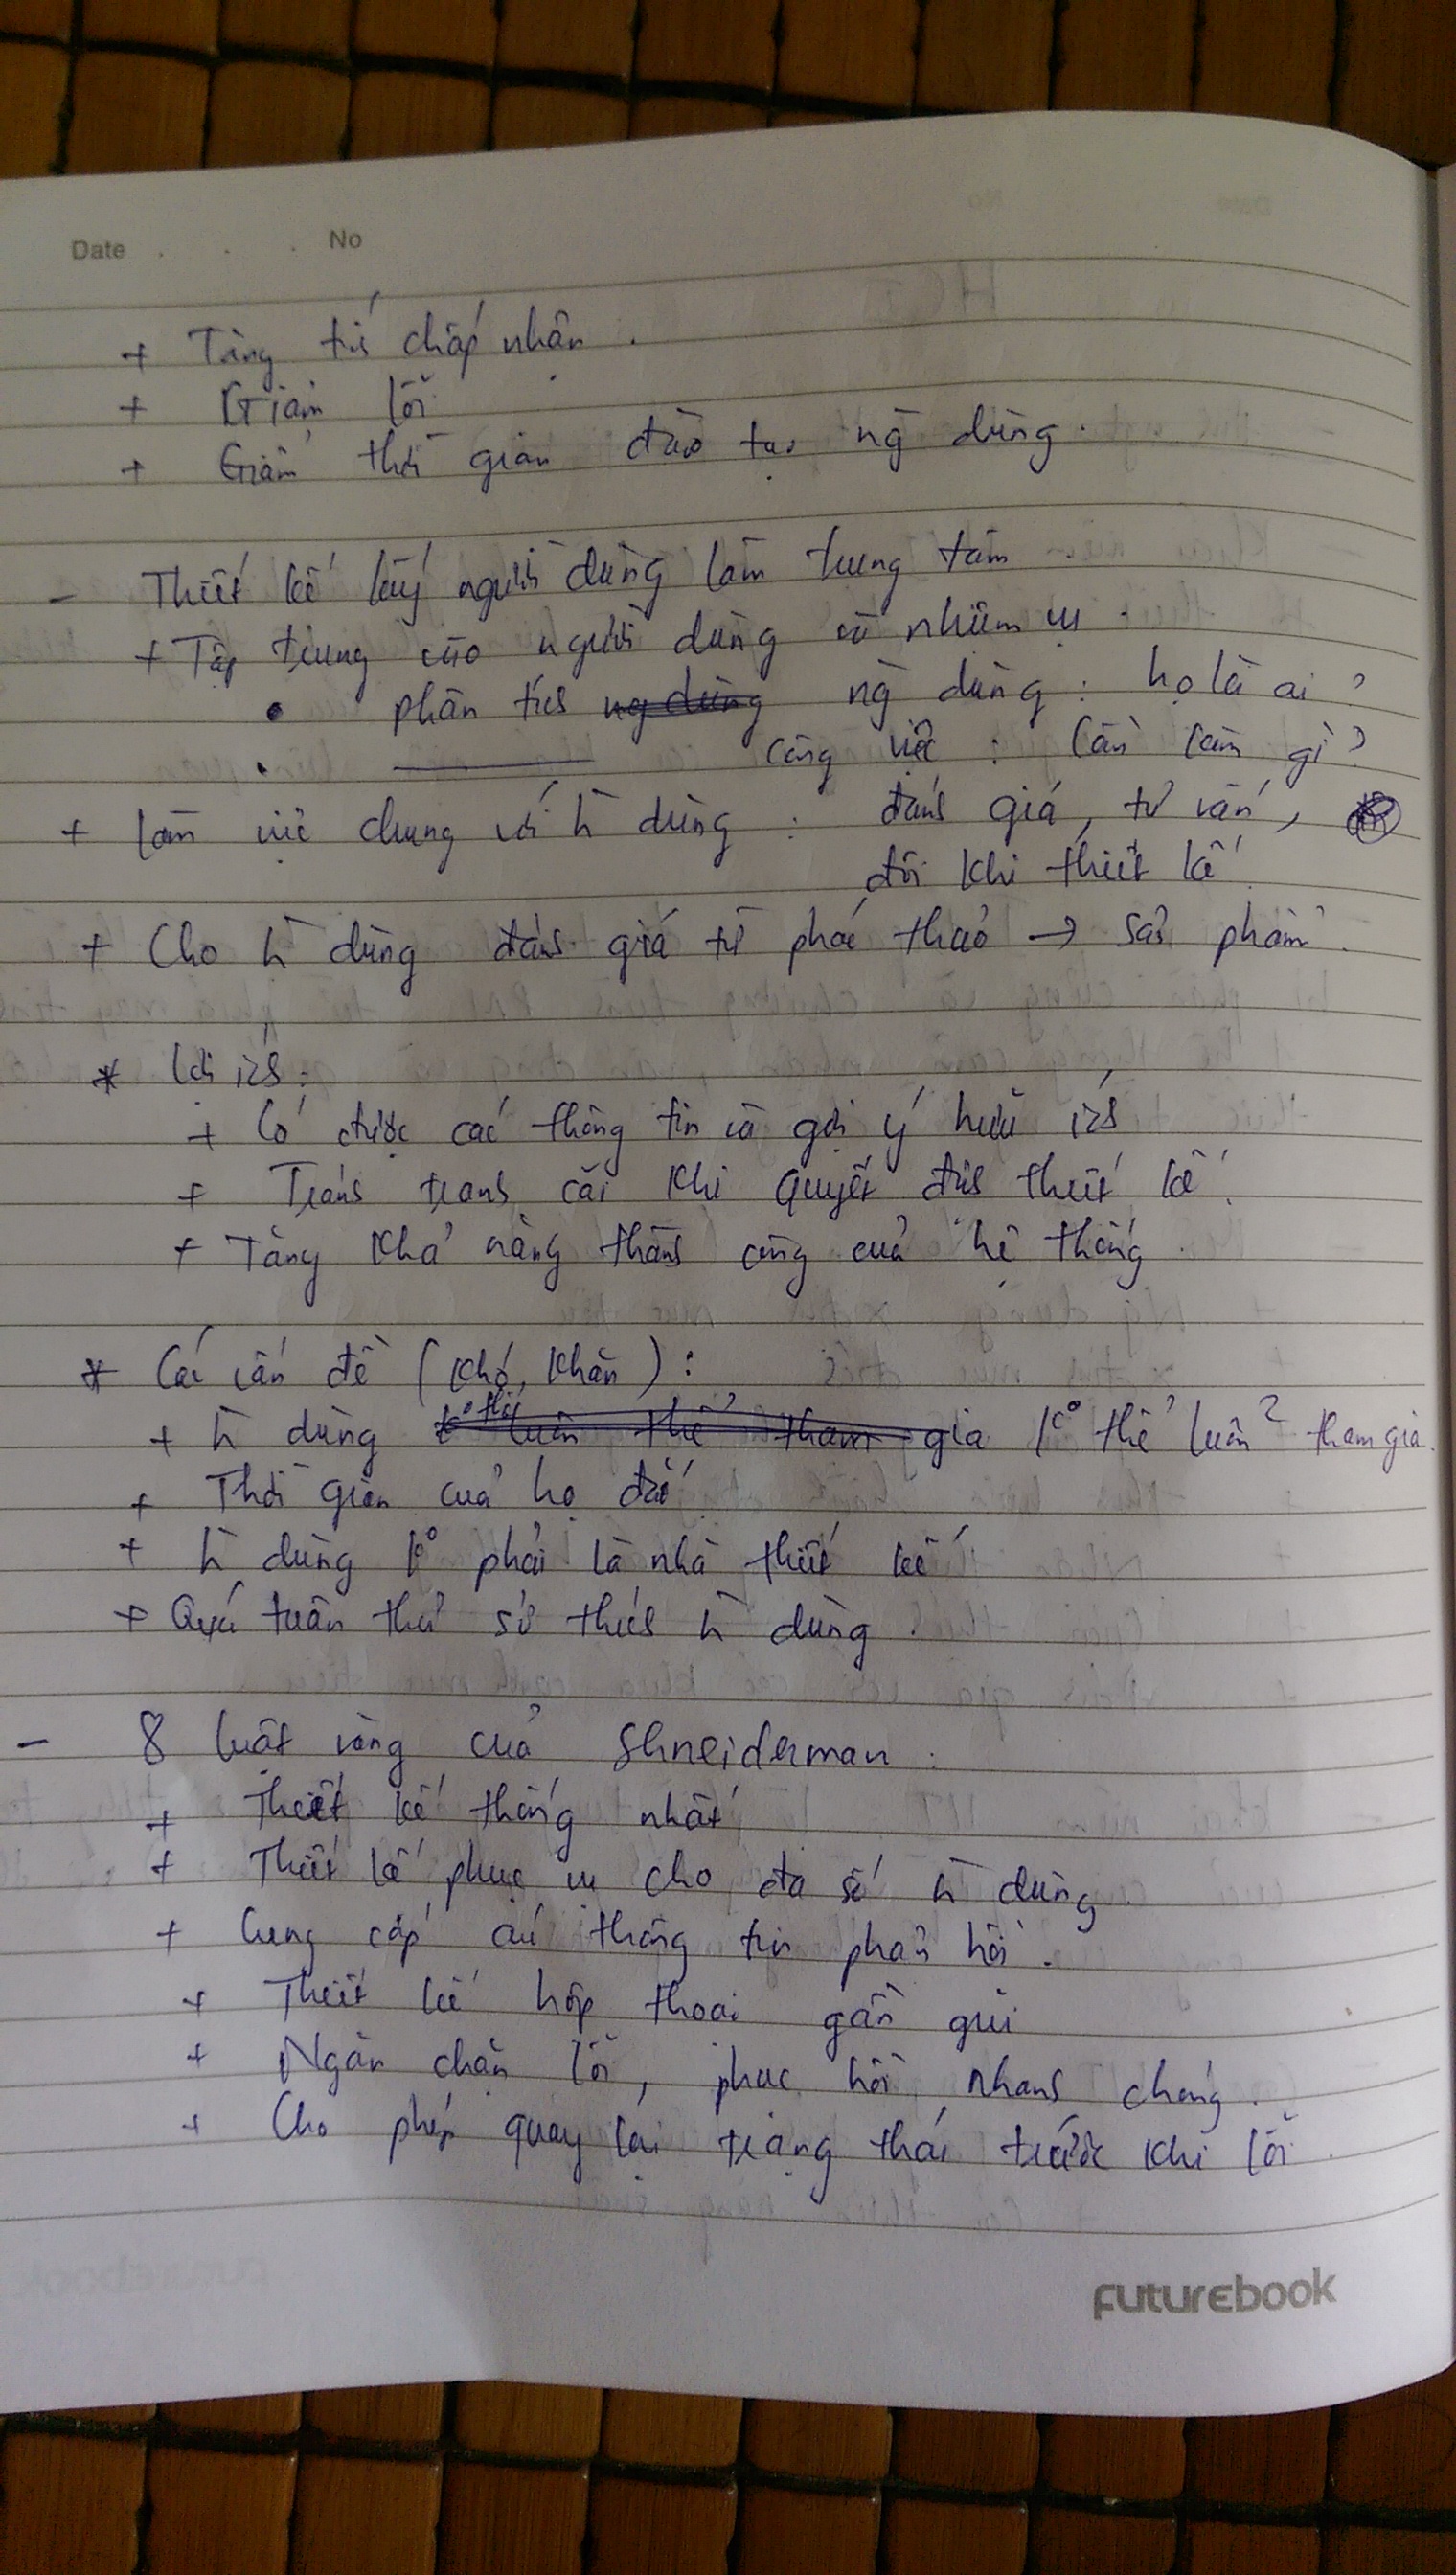 Date . . . No
+ Tăng tís chấp nhận .
+ Giảm lỗi
+ Giảm thời gian đào tạo ng̀ dùng .
- Thiết kế lấy người dùng làm trung tâm
+ Tập trung vào người dùng và nhiệm vụ .
• phân tís ng dùng ng̀ dùng : họ là ai ?
• ——— công việc : Cần làm gì ?
+ làm việc chung với ǹ dùng : đás giá, tư vấn,
đôi khi thiết kế
+ Cho ǹ dùng đás giá từ phác thảo → sản phẩm .
* Lợi ízs :
+ Có được các thông tin và gợi ý hữu ízs
+ Tráns trans cãi khi quyết địns thiết kế .
+ Tăng khả năng thàns công của hệ thống .
* Các vấn đề (khó khăn) :
+ ǹ dùng k° thể luôn² tham gia .
+ Thời gian của họ đắt
+ ǹ dùng k° phải là nhà thiết kế
+ Quá tuân thủ sở thírs ǹ dùng .
- 8 luật vàng của Shneiderman :
+ Thiết kế thống nhất
+ Thiết kế phục vụ cho đa số ǹ dùng
+ Cung cấp các thông tin phản hồi .
+ Thiết kế hộp thoại gần gũi
+ Ngăn chặn lỗi , phục hồi nhans chóng .
+ Cho phép quay lại trạng thái trước khi lỗi .
FUTUREBOOK